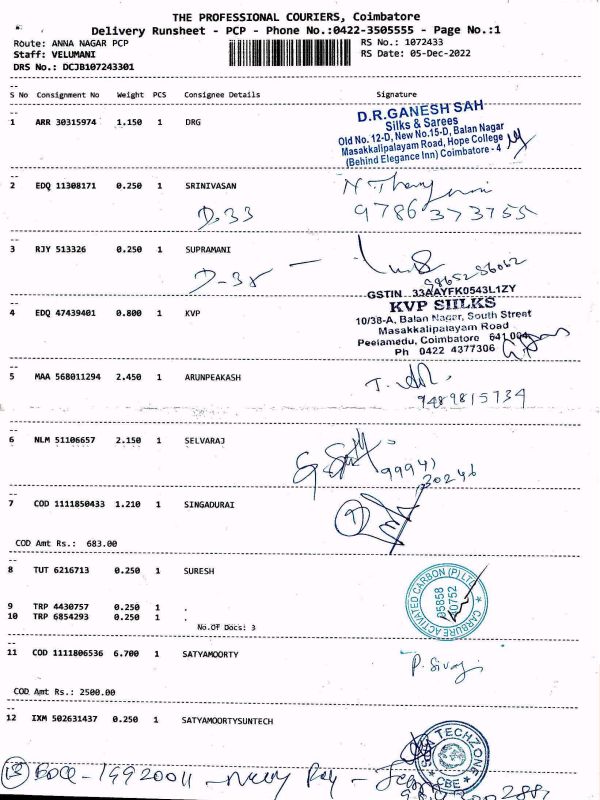 THE PROFESSIONAL COURIERS, Coimbatore
Delivery Runsheet - PCP - Phone No.:0422-3505555 - Page No.:1
Route: ANNA NAGAR PCP RS No.: 1072433
Staff: VELUMANI RS Date: 05-Dec-2022
DRS No.: DCJB107243301
S No Consignment No Weight PCS Consignee Details Signature
1 ARR 30315974 1.150 1 DRG
D.R.GANESH SAH
Silks & Sarees
Old No. 12-D, New No.15-D, Balan Nagar
Masakkalipalayam Road, Hope College
(Behind Elegance Inn) Coimbatore - 4
2 EDQ 11308171 0.250 1 SRINIVASAN
D-33 9786373755
3 RJY 513326 0.250 1 SUPRAMANI
D-38 9865256062
GSTIN 33AAYFK0543L1ZY
4 EDQ 47439401 0.800 1 KVP
KVP SIILKS
10/38-A, Balan Nagar, South Street
Masakkalipalayam Road
Peelamedu, Coimbatore 641 004
Ph 0422 4377306
5 MAA 568011294 2.450 1 ARUNPEAKASH
9489815734
6 NLM 51106657 2.150 1 SELVARAJ
99941
30246
7 COD 1111850433 1.210 1 SINGADURAI
COD Amt Rs.: 683.00
8 TUT 6216713 0.250 1 SURESH
CARBURE ACTIVATED CARBON (P) LTD
05858
40752
9 TRP 4430757 0.250 1 .
10 TRP 6854293 0.250 1 .
No.Of Docs: 3
11 COD 1111806536 6.700 1 SATYAMOORTY
P. Sivaji
COD Amt Rs.: 2500.00
12 IXM 502631437 0.250 1 SATYAMOORTYSUNTECH
TECHZONE
CBE